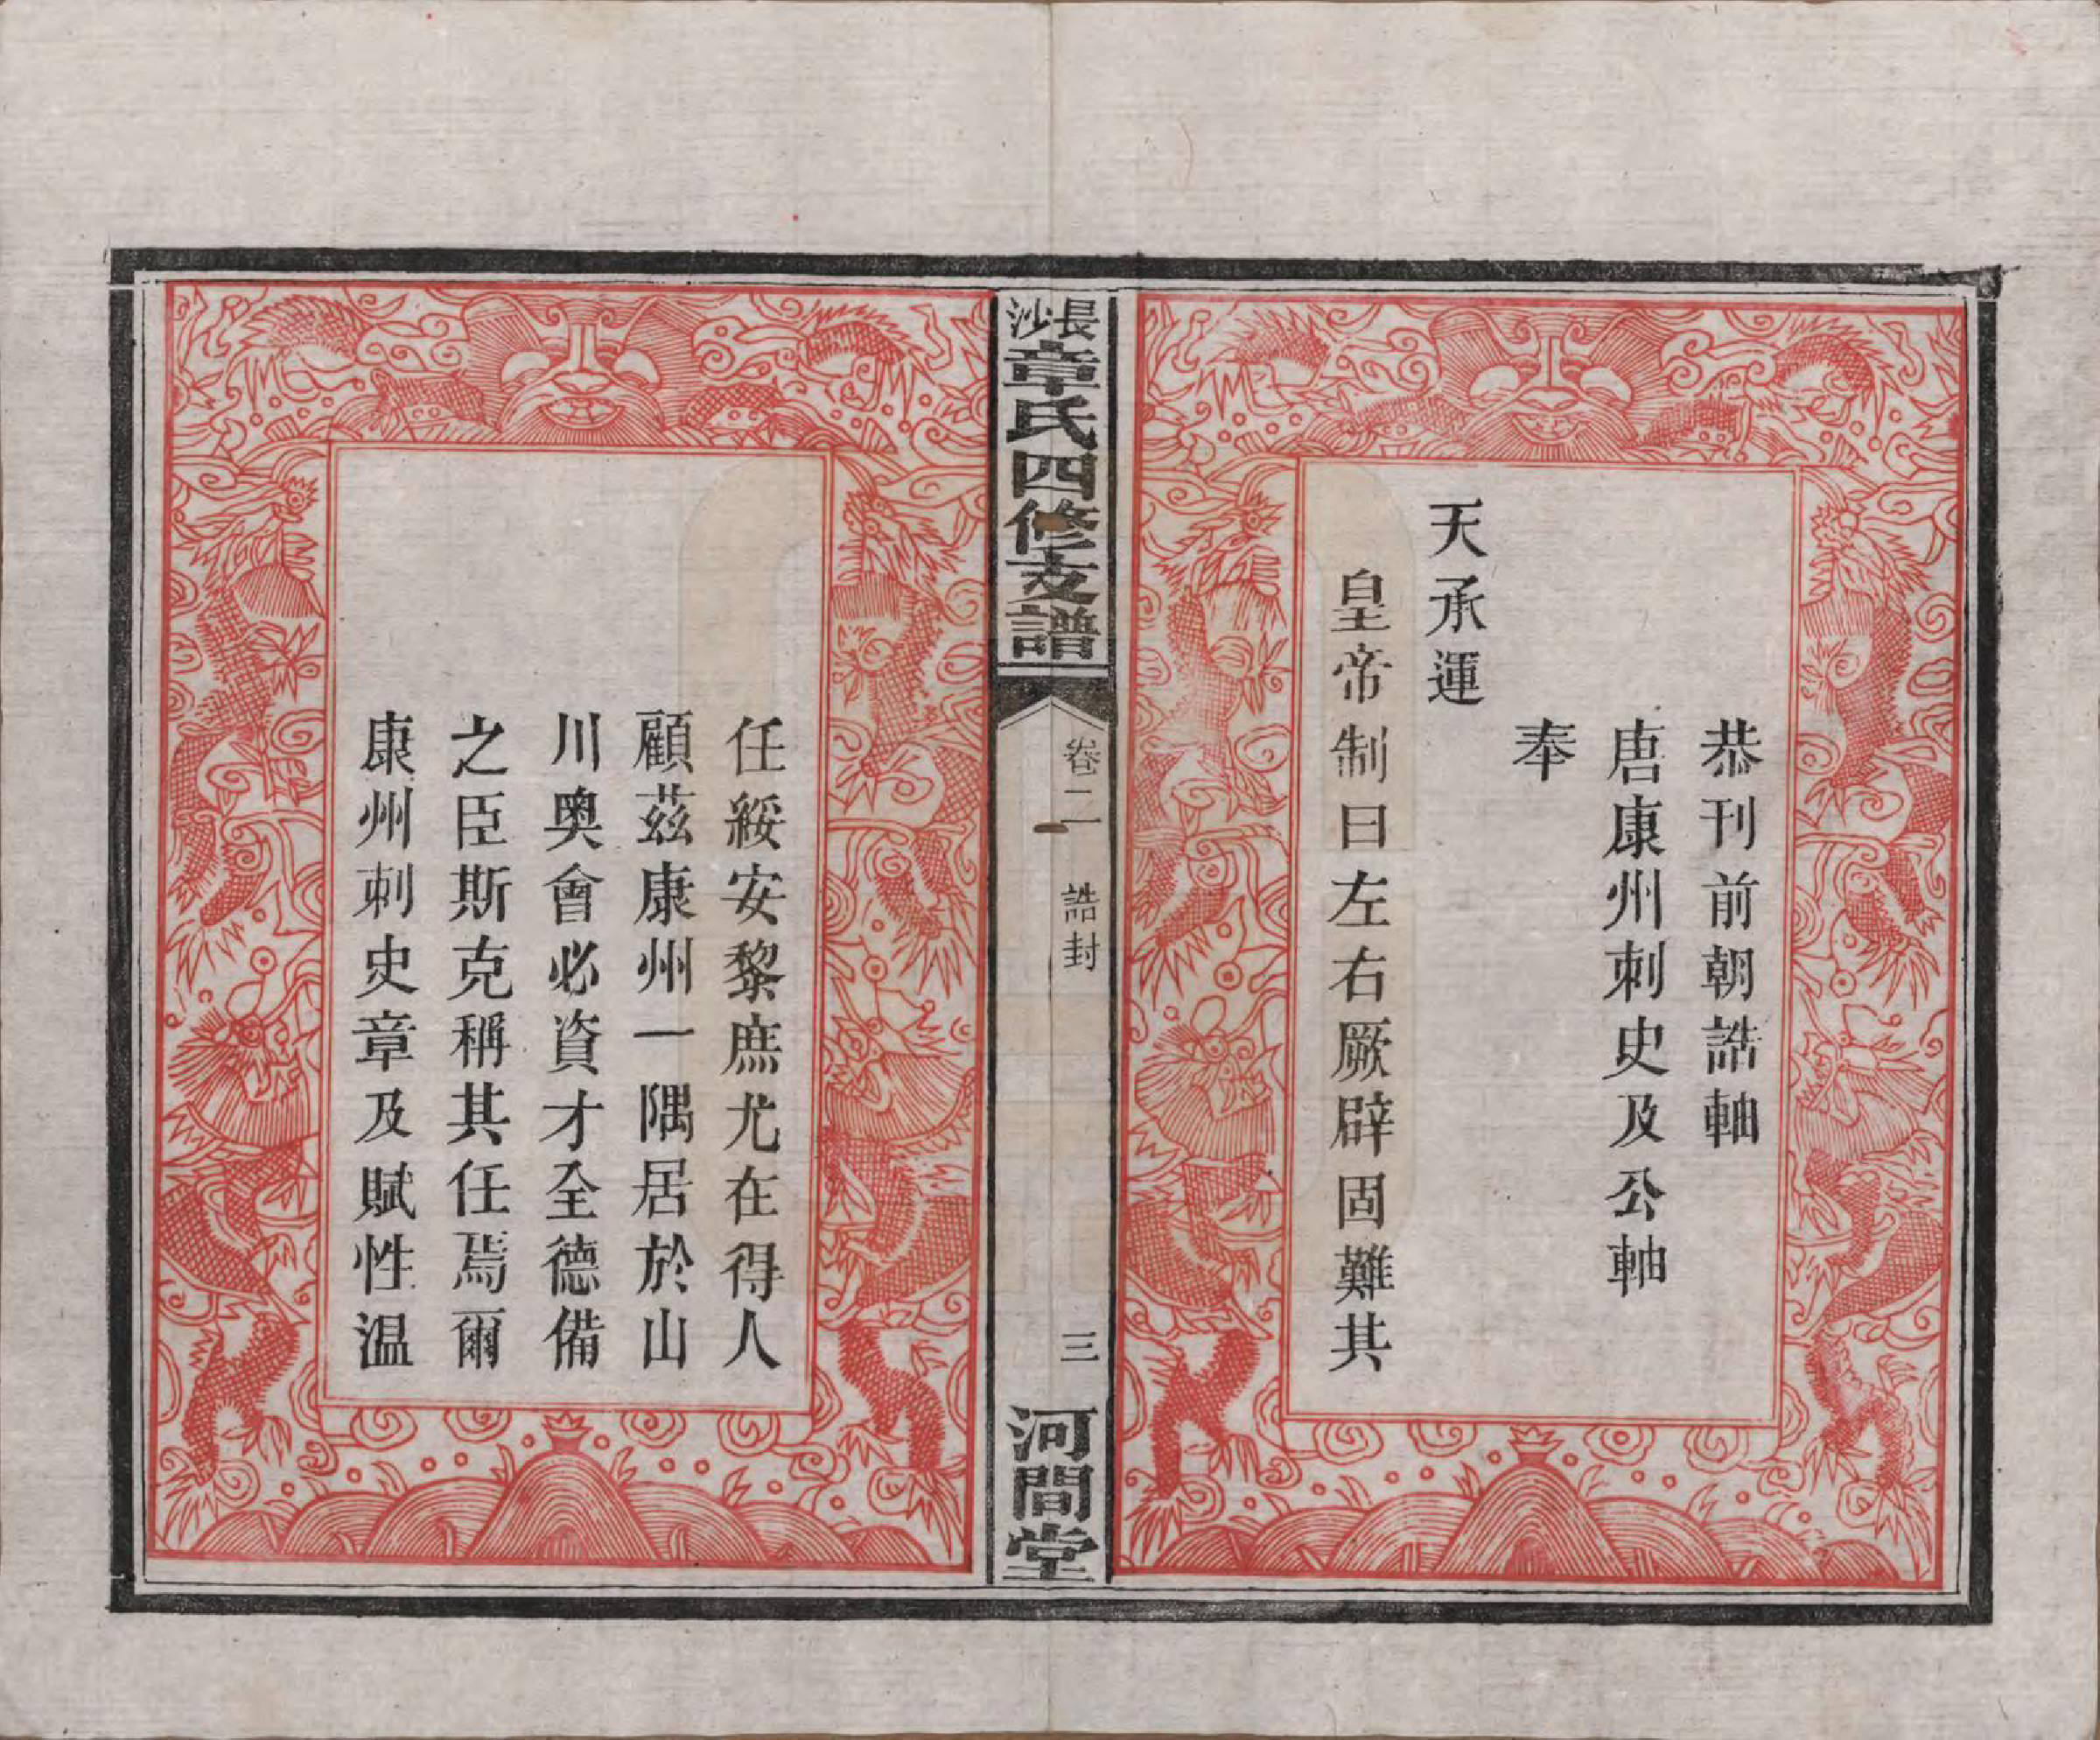 恭刊前朝誥軸
唐康州刺史及公軸
奉
天承運
皇帝制曰左右厥辟固難其
長沙章氏四修支譜
卷二 誥封
三
河間堂
任綏安黎庶尤在得人
顧茲康州一隅居於山
川奧會必資才全德備
之臣斯克稱其任焉爾
康州刺史章及賦性溫